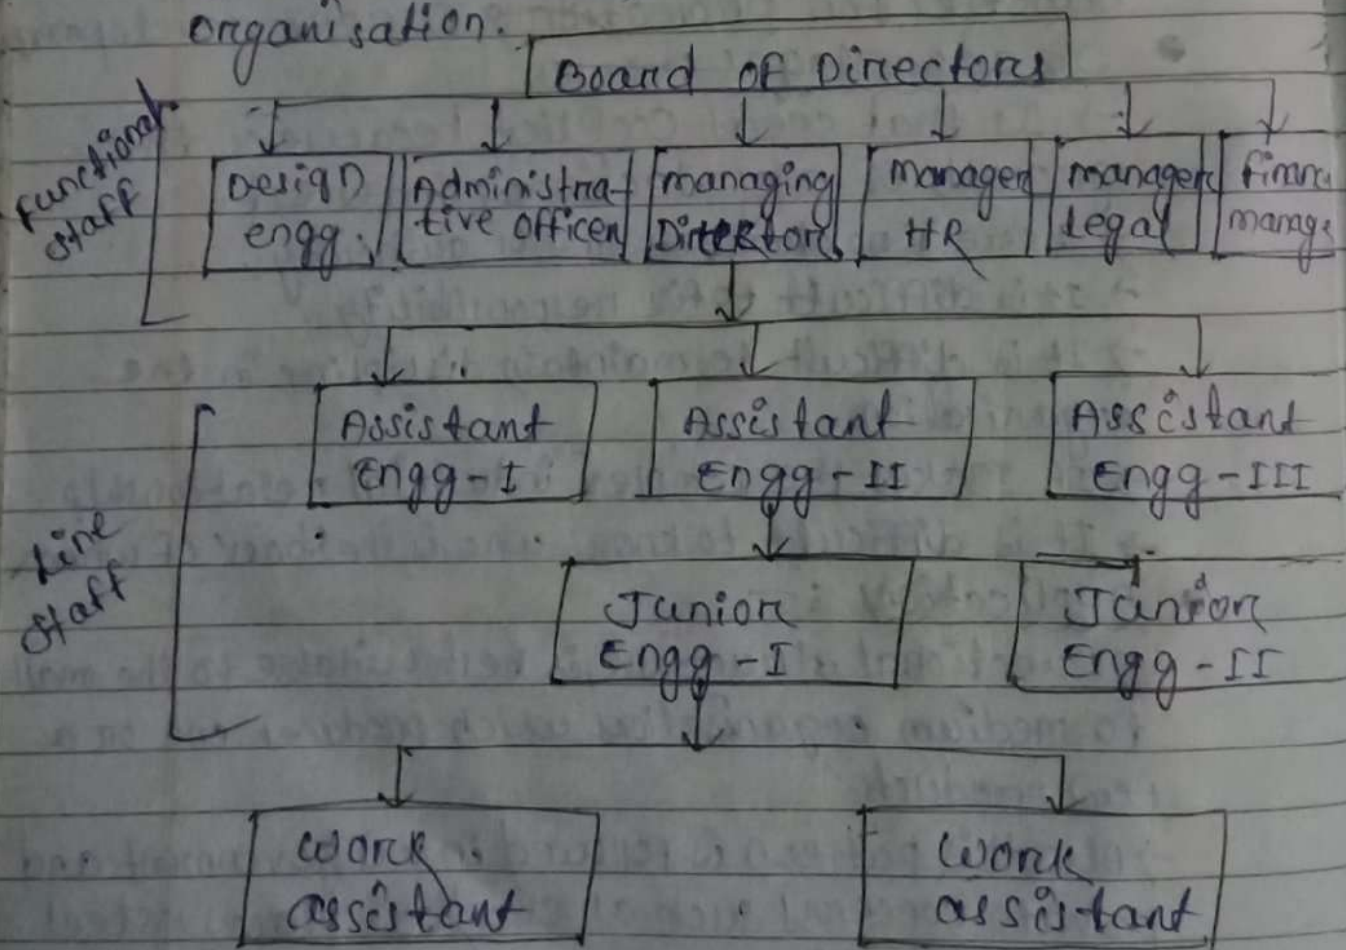 organisation.
Board of Directors
Functional
staff
Design
engg.
Administra-
tive officer
managing
Director
manager
HR
manager
Legal
Line
staff
Assistant
Engg-I
Assistant
Engg-II
Assistant
Engg-III
Junior
Engg-I
Junior
Engg-II
work
assistant
work
assistant